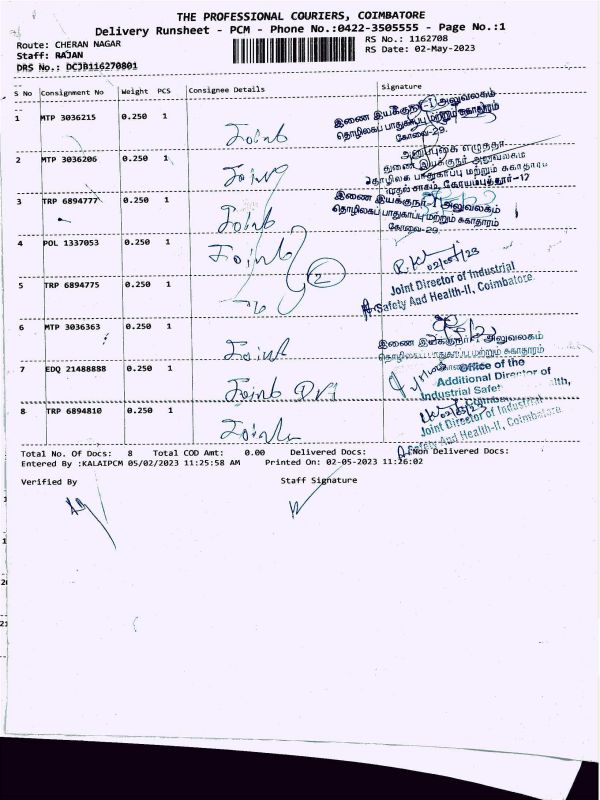 THE PROFESSIONAL COURIERS, COIMBATORE
Delivery Runsheet - PCM - Phone No.:0422-3505555 - Page No.:1
Route: CHERAN NAGAR
RS No.: 1162708
Staff: RAJAN
RS Date: 02-May-2023
DRS No.: DCJB116270801
S No Consignment No Weight PCS Consignee Details Signature
1 MTP 3036215 0.250 1 Joinb
இணை இயக்குநர்-I அலுவலகம்
தொழிலகப் பாதுகாப்பு மற்றும் சுகாதாரம்
கோவை-29.
2 MTP 3036206 0.250 1
துணை இயக்குநர் அலுவலகம்
தொழிலக பாதுகாப்பு மற்றும் சுகாதாரம்
கோயம்புத்தூர்-12
3 TRP 6894777 0.250 1 Joinb
இணை இயக்குநர்-I அலுவலகம்
தொழிலகப் பாதுகாப்பு மற்றும் சுகாதாரம்
கோவை-29.
4 POL 1337053 0.250 1 Joinb
02/05/23
5 TRP 6894775 0.250 1 2
Joint Director of Industrial
Safety And Health-II, Coimbatore
6 MTP 3036363 0.250 1
இணை இயக்குநர் அலுவலகம்
மற்றும் சுகாதாரம்
7 EDQ 21488888 0.250 1 Joinb
Office of the
Additional Director of
Industrial Safety
8 TRP 6894810 0.250 1
Joint Director of Industrial
Safety And Health-II, Coimbatore
Total No. Of Docs: 8 Total COD Amt: 0.00 Delivered Docs: Non Delivered Docs:
Entered By :KALAIPCM 05/02/2023 11:25:58 AM Printed On: 02-05-2023 11:26:02
Verified By Staff Signature